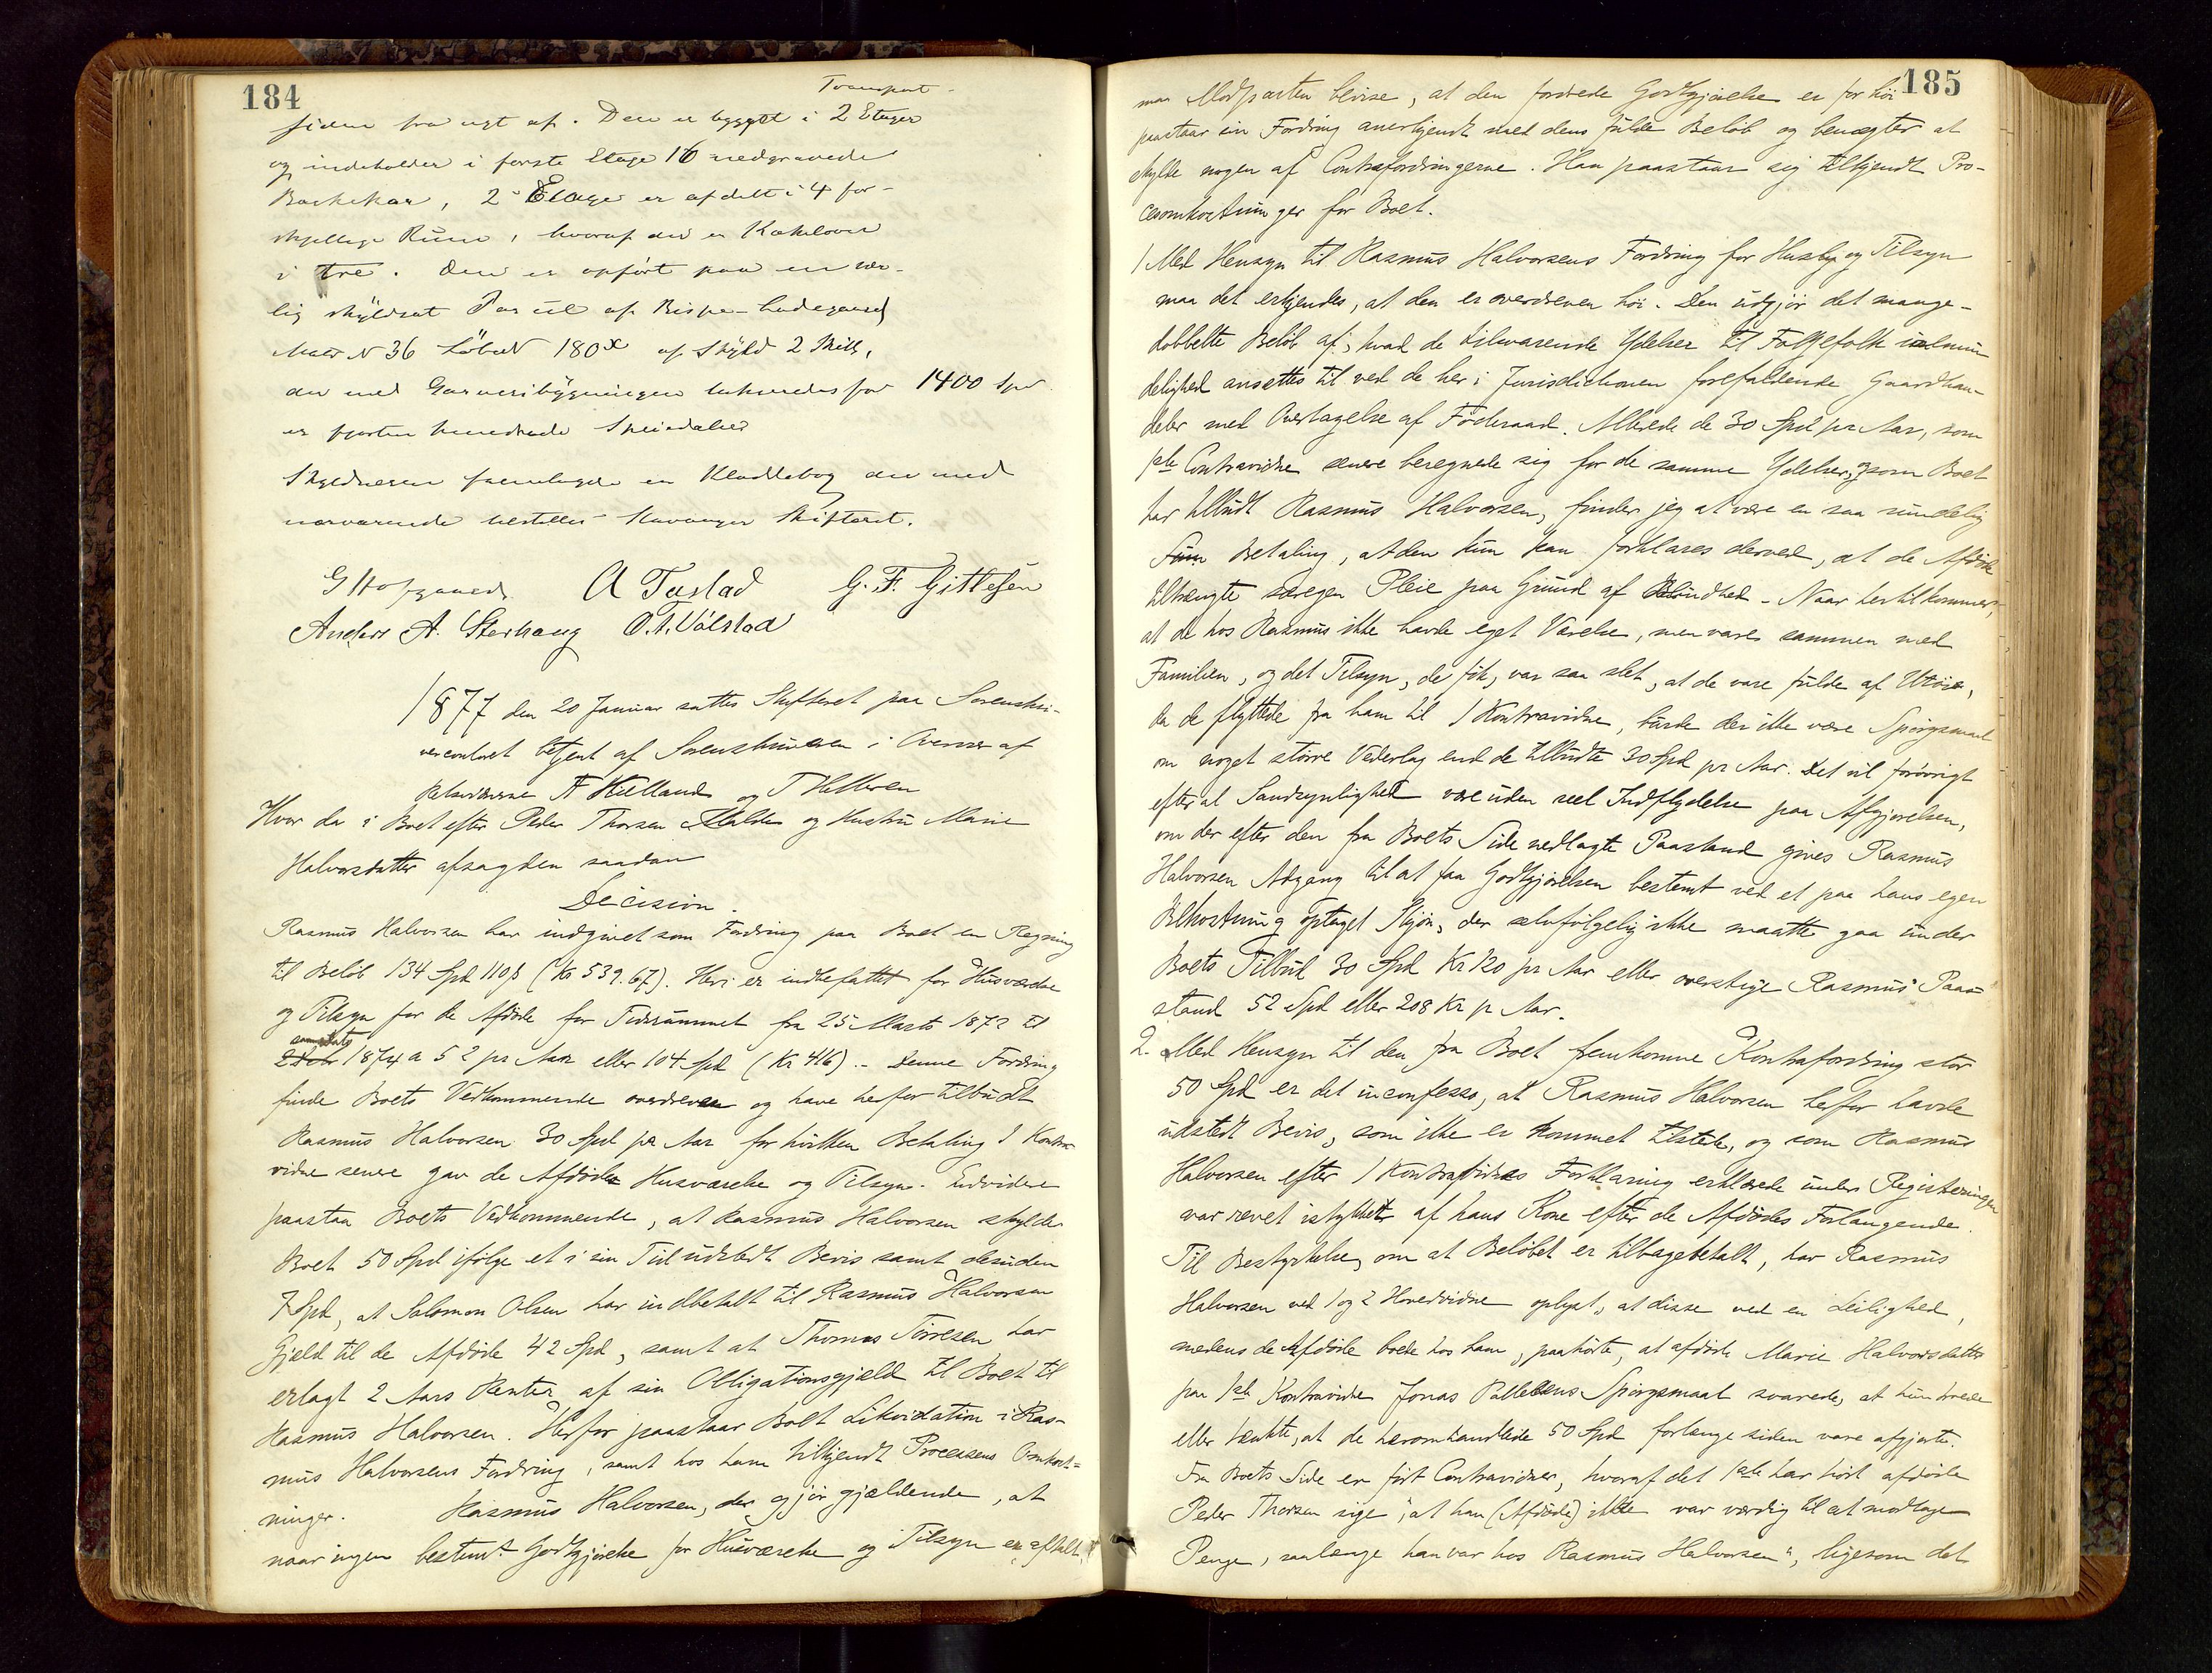 184
Transport
siden fra nyt af. Den er bygget i 2 Etager
og indeholder i første Etage 16 nedgravede
Barkekar, 2 Etage er afdelt i 4 for-
skjellige Rum, hvoraf der er Kakelovn
i tre. Den er opført paa en sær-
lig skyldsat Parcel af Bispeladegaard
Matr N 36 Løbe N 180 af Skyld 2 Skill,
der med Garveribygningen taxeredes for 1400 Spd
er fjorten hundrede Speciedaler
Skyldneren fremlagde en Kladdebog der med
nærværende tilstilles Stavanger Skifteret.
A Tastad G. F. Gittlesen
Anders A. Sterhaug O. T. Vølstad
1877 den 20 Januar sattes Skifteret paa Sorenskri-
vercontoret betjent af Sorenskriveren i Overvær af
Retsvidnerne A Kielland og T Hellesen
Hvor da i Boet efter Peder Thorsen Malde og Hustru Marie
Halvorsdatter afsagdes saadan
Decision.
Rasmus Halvorsen har indgivet som Fordring paa Boet en Regning
til Beløb 134 Spd 110 s (Kr 539.67). Heri er indbefattet for Husværelse
og Tilsyn for de Afdøde for Tidsrummet fra 25 Marts 1872 til
samme Dato
1874 a 52 pr Aar eller 104 Spd (Kr 416).- Denne Fordring
finde Boets Vedkommende overdreven og have herfor tilbudt
Rasmus Halvorsen 30 Spd pr Aar for hvilken Betaling 1 Kontra-
vidne senere gav de Afdøde Husværelse og Tilsyn. Endvidere
paastaa Boets Vedkommende, at Rasmus Halvorsen skylder
Boet 50 Spd ifølge et i sin Tid udstedt Bevis samt desuden
7 Spd, at Salomon Olsen har indbetalt til Rasmus Halvorsen
Gjeld til de Afdøde 42 Spd, samt at Thomas Tørresen har
erlagt 2 Aars Renter af sin Obligationsgjæld til Boet til
Rasmus Halvorsen. Herfor paastaar Boet Likvidation i Ras-
mus Halvorsens Fordring, samt hos ham tilkjendt Processens Omkost-
ninger. Rasmus Halvorsen, der gjør gjældende, at
naar ingen bestemt Godtgjørelse for Husværelse og Tilsyn er aftalt,
185
maa Modparten bevise, at den fordrede Godtgjørelse er for høi
paastaar sin Fordring anerkjendt med dens fulde Beløb og benægter at
skylde nogen af Contrafordringerne. Han paastaar sig tilkjendt Pro-
cesomkostninger for Boet.
1 Med Hensyn til Rasmus Halvorsens Fordring for Husly og Tilsyn
maa det erkjendes, at den er overdreven høi. Den udgjør det mange-
dobbelte Beløb af, hvad de tilsvarende Ydelser til Følgefolk i almin
delighed ansættes til ved de her i Jurisdictionen forefaldende Gaardhan-
deler med Overtagelse af Føderaad. Allerede de 30 Spd pr Aar, som
1ste Contravidne senere beregnede sig for de samme Ydelser, og som Boet
har tilbudt Rasmus Halvorsen, finder jeg at være en saa rundelig
Betaling, at den kun kan forklares derved, at de Afdøde
tiltrængte særegen Pleie paa Grund af Blindhed - Naar hertil kommer,
at de hos Rasmus ikke havde eget Værelse, men vare sammen med
Familien, og det Tilsyn, de fik, var saa slet, at de vare fulde af Utøi,
da de flyttede fra ham til 1 Kontravidne, burde der ikke være Spørgsmaal
om noget større Vederlag end de tilbudte 30 Spd pr Aar. Det vil forøvrigt
efter al Sandsynlighed være uden reel Indflydelse paa Afgjørelsen,
om der efter den fra Boets Side nedlagte Paastand gives Rasmus
Halvorsen Adgang til at faa Godtgjørelsen bestemt ved et paa hans egen
Bekostning optaget Skjøn, der selvfølgelig ikke maatte gaa under
Boets Tilbud 30 Spd Kr 120 pr Aar eller overstige Rasmus' Paa-
stand 52 Spd eller 208 Kr pr Aar.
2. Med Hensyn til den fra Boet fremkomne Kontrafordring stor
50 Spd er det in confesso, at Rasmus Halvorsen herfor havde
udstedt Bevis, som ikke er kommet tilstede, og som Rasmus
Halvorsen efter 1 Kontravidnes Forklaring erklærede under Registeringen
var revet istykker af hans Kone efter de Afdødes Forlangende.
Til Bestyrkelse, om at Beløbet er tilbagebetalt, har Rasmus
Halvorsen ved 1 og 2 Hovedvidne oplyst, at disse ved en Leilighed,
medens de Afdøde boede hos ham, paahørte, at afdøde Marie Halvorsdatter
paa 1ste Kontravidne Jonas Pallesens Spørgsmaal svarede, at hun troede
eller tænkte, at de heromhandlede 50 Spd forlænge siden vare afgjorte.
Fra Boets Side er ført Contravidner, hvoraf det 1ste har hørt afdøde
Peder Thorsen sige „at han (Afdøde) ikke var værdig til at modtage
Penge, saalænge han var hos Rasmus Halvorsen", ligesom det